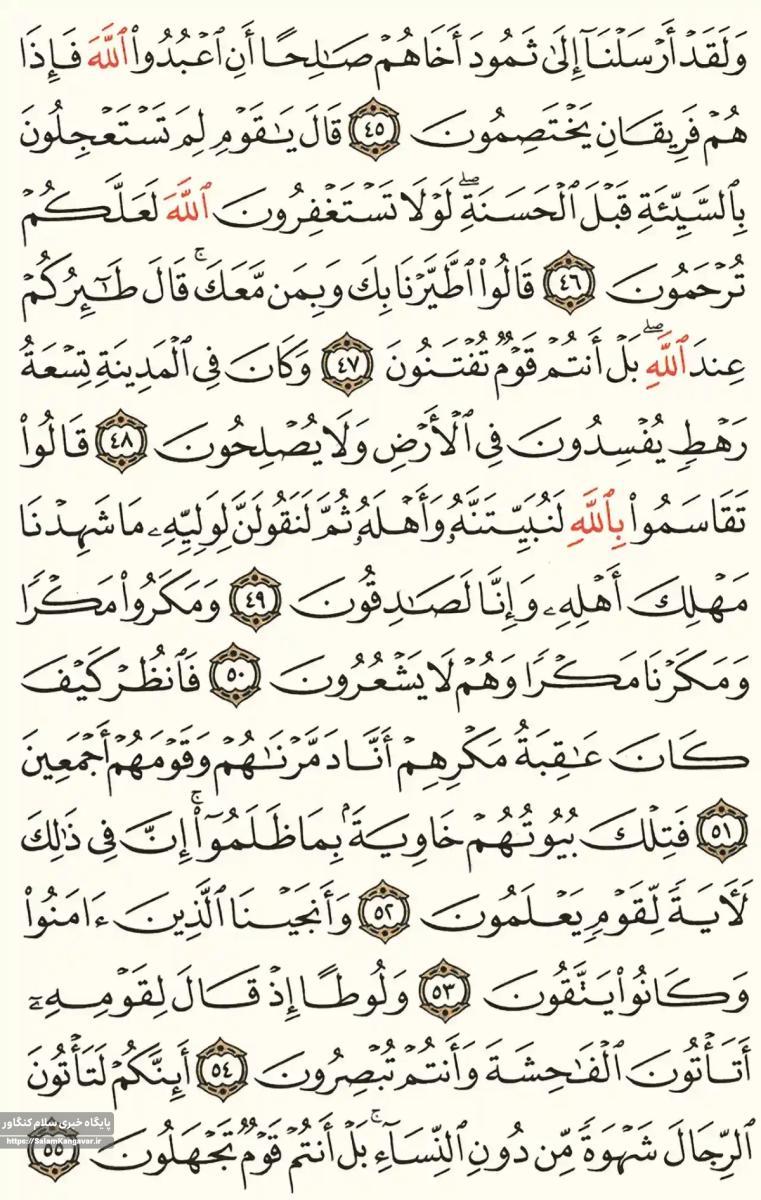 وَلَقَدْ أَرْسَلْنَآ إِلَىٰ ثَمُودَ أَخَاهُمْ صَٰلِحًا أَنِ ٱعْبُدُوا۟ ٱللَّهَ فَإِذَا
هُمْ فَرِيقَانِ يَخْتَصِمُونَ ٤٥ قَالَ يَٰقَوْمِ لِمَ تَسْتَعْجِلُونَ
بِٱلسَّيِّئَةِ قَبْلَ ٱلْحَسَنَةِۖ لَوْلَا تَسْتَغْفِرُونَ ٱللَّهَ لَعَلَّكُمْ
تُرْحَمُونَ ٤٦ قَالُوا۟ ٱطَّيَّرْنَا بِكَ وَبِمَن مَّعَكَۚ قَالَ طَٰٓئِرُكُمْ
عِندَ ٱللَّهِۖ بَلْ أَنتُمْ قَوْمٌ تُفْتَنُونَ ٤٧ وَكَانَ فِى ٱلْمَدِينَةِ تِسْعَةُ
رَهْطٍ يُفْسِدُونَ فِى ٱلْأَرْضِ وَلَا يُصْلِحُونَ ٤٨ قَالُوا۟
تَقَاسَمُوا۟ بِٱللَّهِ لَنُبَيِّتَنَّهُۥ وَأَهْلَهُۥ ثُمَّ لَنَقُولَنَّ لِوَلِيِّهِۦ مَا شَهِدْنَا
مَهْلِكَ أَهْلِهِۦ وَإِنَّا لَصَٰدِقُونَ ٤٩ وَمَكَرُوا۟ مَكْرًا
وَمَكَرْنَا مَكْرًا وَهُمْ لَا يَشْعُرُونَ ٥٠ فَٱنظُرْ كَيْفَ
كَانَ عَٰقِبَةُ مَكْرِهِمْ أَنَّا دَمَّرْنَٰهُمْ وَقَوْمَهُمْ أَجْمَعِينَ
٥١ فَتِلْكَ بُيُوتُهُمْ خَاوِيَةًۢ بِمَا ظَلَمُوٓا۟ۚ إِنَّ فِى ذَٰلِكَ
لَءَايَةً لِّقَوْمٍ يَعْلَمُونَ ٥٢ وَأَنجَيْنَا ٱلَّذِينَ ءَامَنُوا۟
وَكَانُوا۟ يَتَّقُونَ ٥٣ وَلُوطًا إِذْ قَالَ لِقَوْمِهِۦٓ
أَتَأْتُونَ ٱلْفَٰحِشَةَ وَأَنتُمْ تُبْصِرُونَ ٥٤ أَئِنَّكُمْ لَتَأْتُونَ
ٱلرِّجَالَ شَهْوَةً مِّن دُونِ ٱلنِّسَآءِۚ بَلْ أَنتُمْ قَوْمٌ تَجْهَلُونَ ٥٥
پایگاه خبری سلام کنگاور
https://SalamKangavar.ir